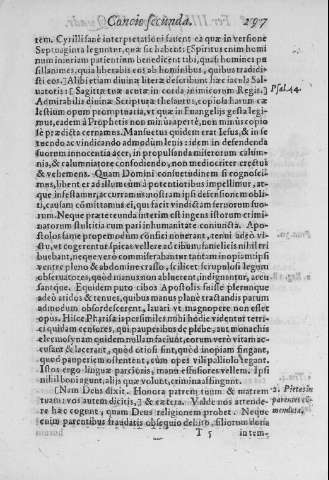 Concio secunda. 297
tem. Cyrillisanè interpretationi fauent ea quæ in versione
Septuaginta leguntur, quæ sic habent: [Spiritus enim homi
num iniuriam patientium benedicent tibi, quasi homines pu
sillanimes, quia liberabis eos ab hominibus, quibus tradidi-
sti eos.] Alibi etiam diuinæ literæ describunt hæc iacula Sal-
uatoris: [Sagittæ tuæ acutæ in corda inimicorum Regis.] Psal. 44.
Admirabilis diuinæ Scripturæ thesaurus, copiosa harum cæ
lestium opum promptuaria, vt quæ in Euangelijs gesta legi-
mus, eadem à Prophetis non minùs apertè, non minus copio
sè prædicta cernamus. Mansuetus quidem erat Iesus, & in se
tuendo ac vindicando admodum lenis: idem in defendenda
suorum innocentia acer, in propulsanda miserorum calum-
nia, & calumniatore confodiendo, non mediocriter erectus
& vehemens. Quam Domini consuetudinem si cognosceli-
mus, libenter ad illum eùm à potentioribus impellimur, at-
que infestamur, accurramus nostram ipsi defensionem obli-
ti, causam cõmittamus ei, qui facit vindictam seruorum suo-
rum. Neque prætereunda interim est ingens istorum crimi-
natorum stultitia cum pari inhumanitate coniuncta. Apo-
stolos fame propemodum confici nouerant, tenui adeò vi-
ctu, vt cogerentur spicas vellere ad cibum: famelicis nihil tri
buebant, neque verò commiserabantur tantam inopiam: ipsi
ventre pleno & abdomine crasso, scilicet scrupulosi legum
obseruatores, quòd manus non abluerent, indignantur, accu-
santque. Equidem puto cibos Apostolis fuisse plerunque
adeò aridos & tenues, quibus manus planè tractandis parum
admodum obsordescerent, lauari vt magnopere non esset
opus. Hisce Pharisæis persimiles mihi hodie videntur terri-
ci quidam censores, qui pauperibus de plebe, aut monachis
eleemosynam quidem nullam faciunt, eorum verò vitam ac-
cusant & lacerant, quòd otiosi sint, quòd inopiam fingant,
quod pauperiem ostentent, cùm opes vili pallio legant.
Istos ergo linguæ parciores, manu effusiores vellem. Ipsi
nihil boni agunt, alijs quæ volunt, crimina affingunt.
[Nam Deus dixit. Honora patrem tuum & matrem 2. Pietas in
tuam: vos autem dicitis,] & cætera. Valde nos attende- parentes cō-
re hæc cogunt, quam Deus religionem probet. Neque mendata.
enim parentibus fraudatis obsequio debito, filiorum doria
T 5 intem-